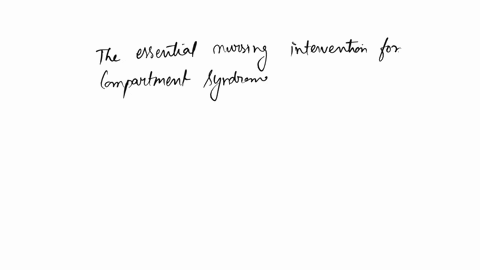 The essential nursing intervention for
Compartment Syndrome